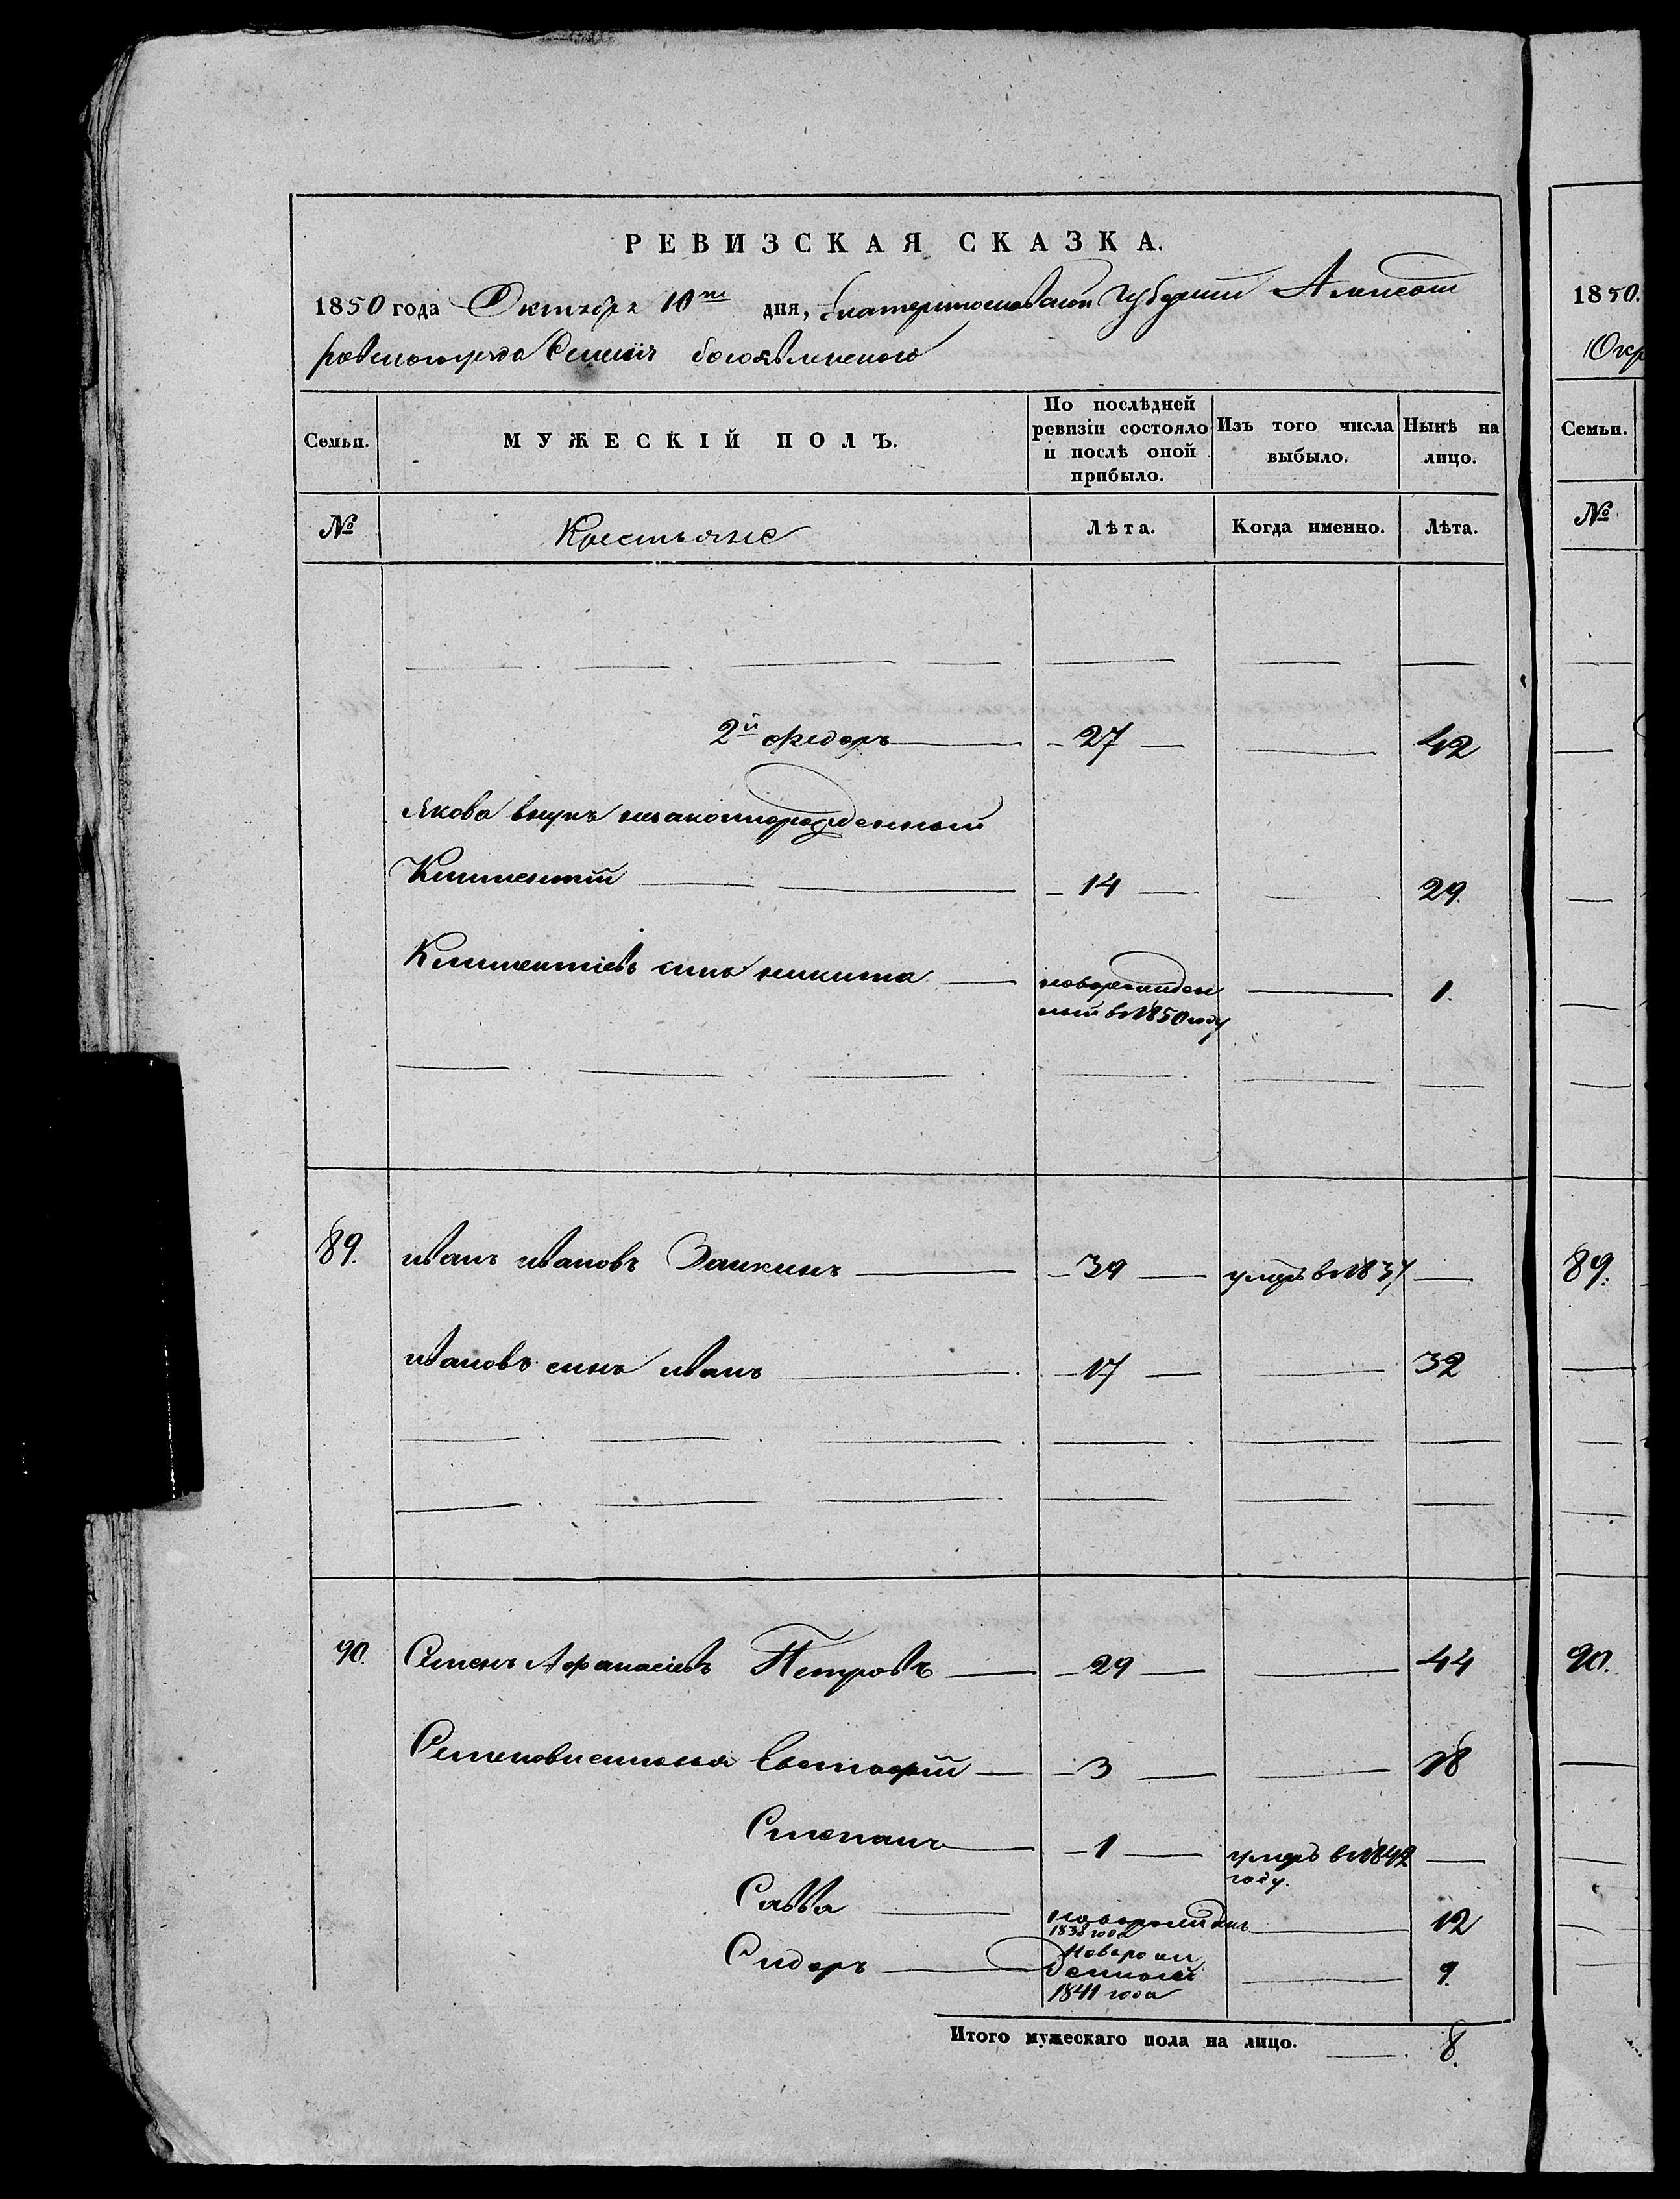 РЕВИЗСКАЯ СКАЗКА.
1850 года Октября 10го дня, Екатеринославской Губернии Александ
ровского уезда Селения богоявленского
Семьи. МУЖЕСКІЙ ПОЛЪ. По послѣдней ревизіи состояло и послѣ оной прибыло. Изъ того числа выбыло. Нынѣ на лицо.
№ Крестьяне Лѣта. Когда именно. Лѣта.
2й Федоръ 27 42
Якова внукъ незаконнорожденный
Климентій 14 29.
Климентіевъ сынъ никита новорожден
ный в 1850 году 1.
89. иванъ ивановъ Заикинъ 39 умеръ в 1837
ивановъ сынъ иванъ 17 32
90. Семенъ Афанасіевъ Петровъ 29 44
Семеновы сыновья Евстафій 3 18
Степанъ 1 умеръ в 1842
году.
Савва новорожден
1838 года 12
Сидоръ Новорож
денный
1841 года 9.
Итого мужескаго пола на лицо. 8.
1850.
Окр
Семьи.
№
89.
90.